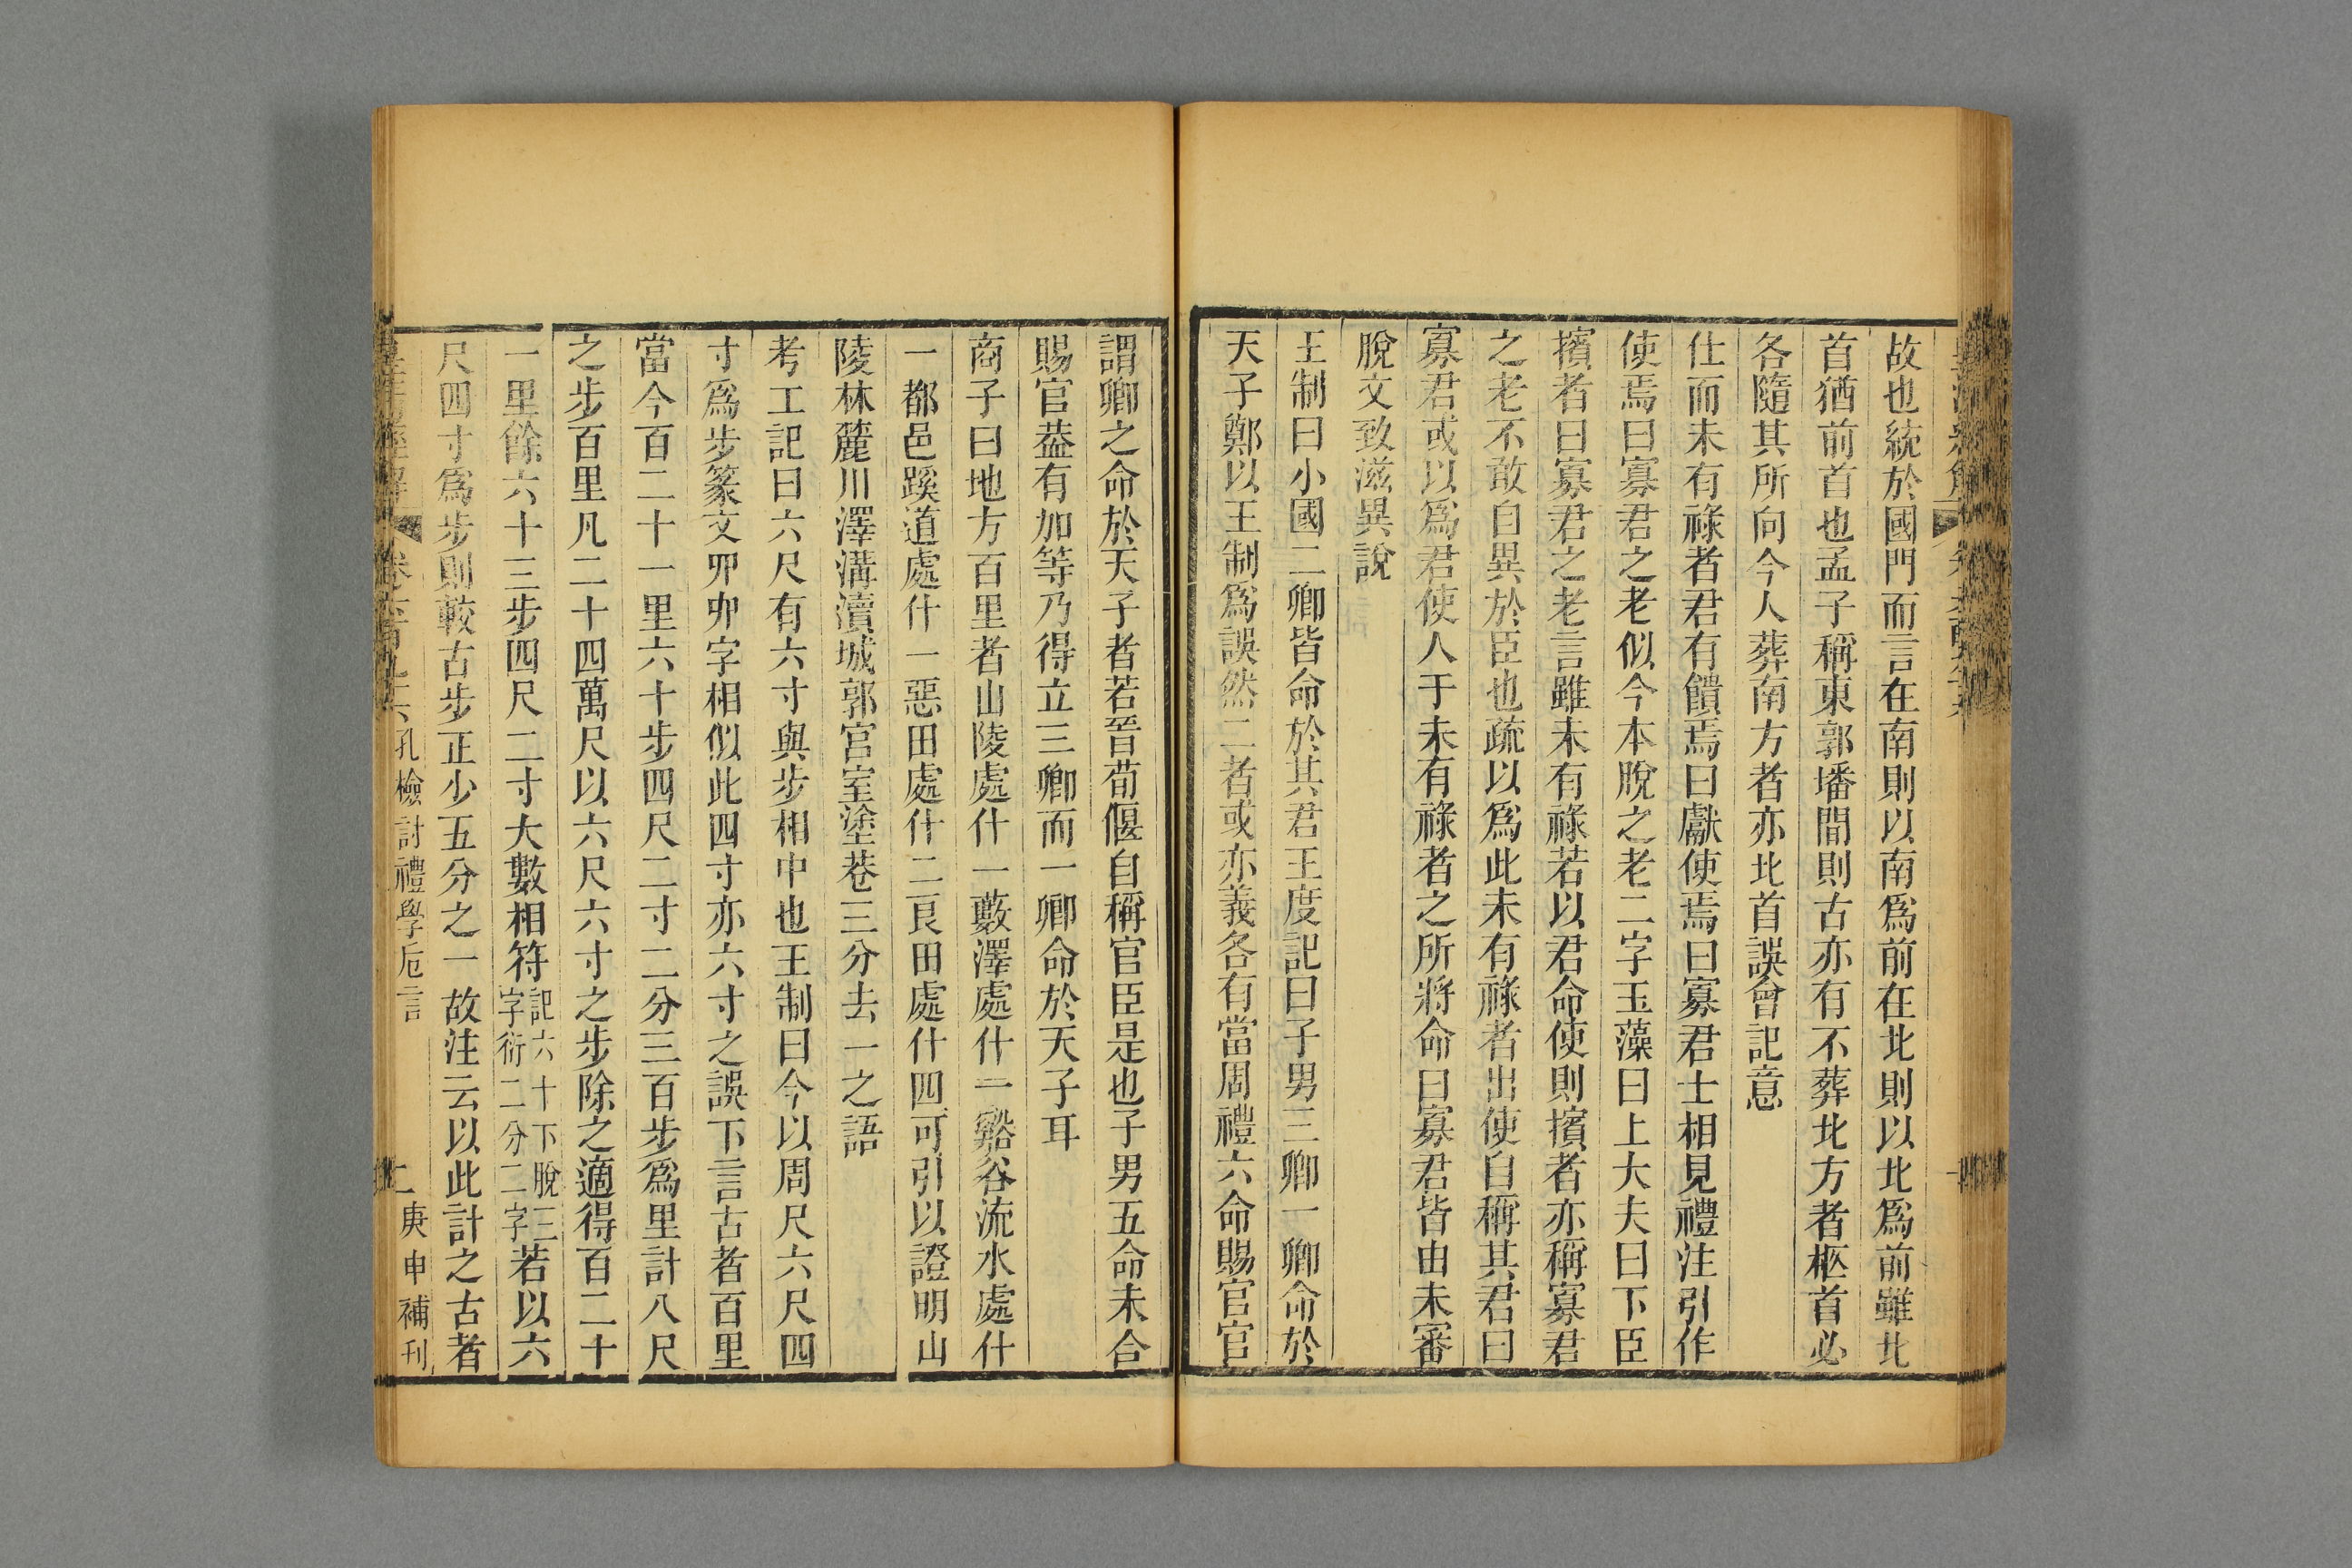 故也統於國門而言在南則以南爲前在北則以北爲前雖北
首猶前首也孟子稱東郭墦間則古亦有不葬北方者柩首必
各隨其所向今人葬南方者亦北首誤會記意
仕而未有祿者君有饋焉曰獻使焉曰寡君士相見禮注引作
使焉曰寡君之老似今本脫之老二字玉藻曰上大夫曰下臣
擯者曰寡君之老言雖未有祿若以君命使則擯者亦稱寡君
之老不敢自異於臣也疏以爲此未有祿者出使自稱其君曰
寡君或以爲君使人于未有祿者之所將命曰寡君皆由未審
脫文致滋異說
王制曰小國二卿皆命於其君王度記曰子男三卿一卿命於
天子鄭以王制爲誤然二者或亦義各有當周禮六命賜官官
謂卿之命於天子者若晉荀偃自稱官臣是也子男五命未合
賜官葢有加等乃得立三卿而一卿命於天子耳
商子曰地方百里者山陵處什一藪澤處什一谿谷流水處什
一都邑蹊道處什一惡田處什二良田處什四可引以證明山
陵林麓川澤溝瀆城郭宮室塗巷三分去一之語
考工記曰六尺有六寸與步相中也王制曰今以周尺六尺四
寸爲步篆文丣丱字相似此四寸亦六寸之誤下言古者百里
當今百二十一里六十步四尺二寸二分三百步爲里計八尺
之步百里凡二十四萬尺以六尺六寸之步除之適得百二十
一里餘六十三步四尺二寸大數相符記六十下脫三字衍二分二字若以六
尺四寸爲步則較古步正少五分之一故注云以此計之古者
皇淸經解 卷六百九十六 孔檢討禮學卮言 庚申補刊